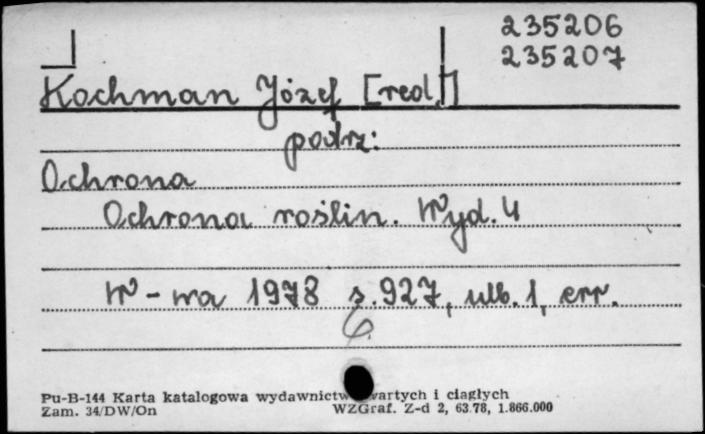 235206
235207
Kochman Józef [red.]
podrz:
Ochrona
Ochrona roślin. Wyd. 4
W-wa 1978 s. 927, ulb. 1, err.
Pu-B-144 Karta katalogowa wydawnictw zwartych i ciągłych
Zam. 34/DW/On WZGraf. Z-d 2, 63.78, 1.866.000